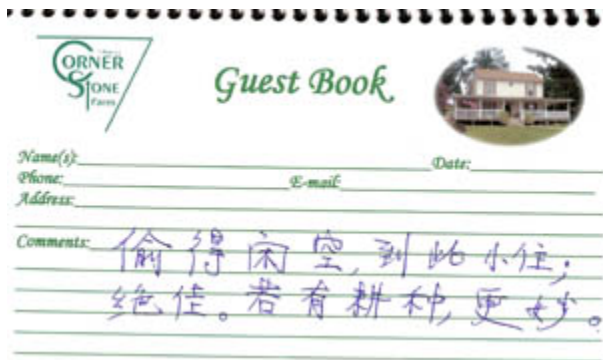 CORNER
STONE
Farm
Guest Book
Name(s):
Date:
Phone:
E-mail:
Address:
Comments:
偷得闲空,到此小住;
绝佳。若有耕种,更妙。